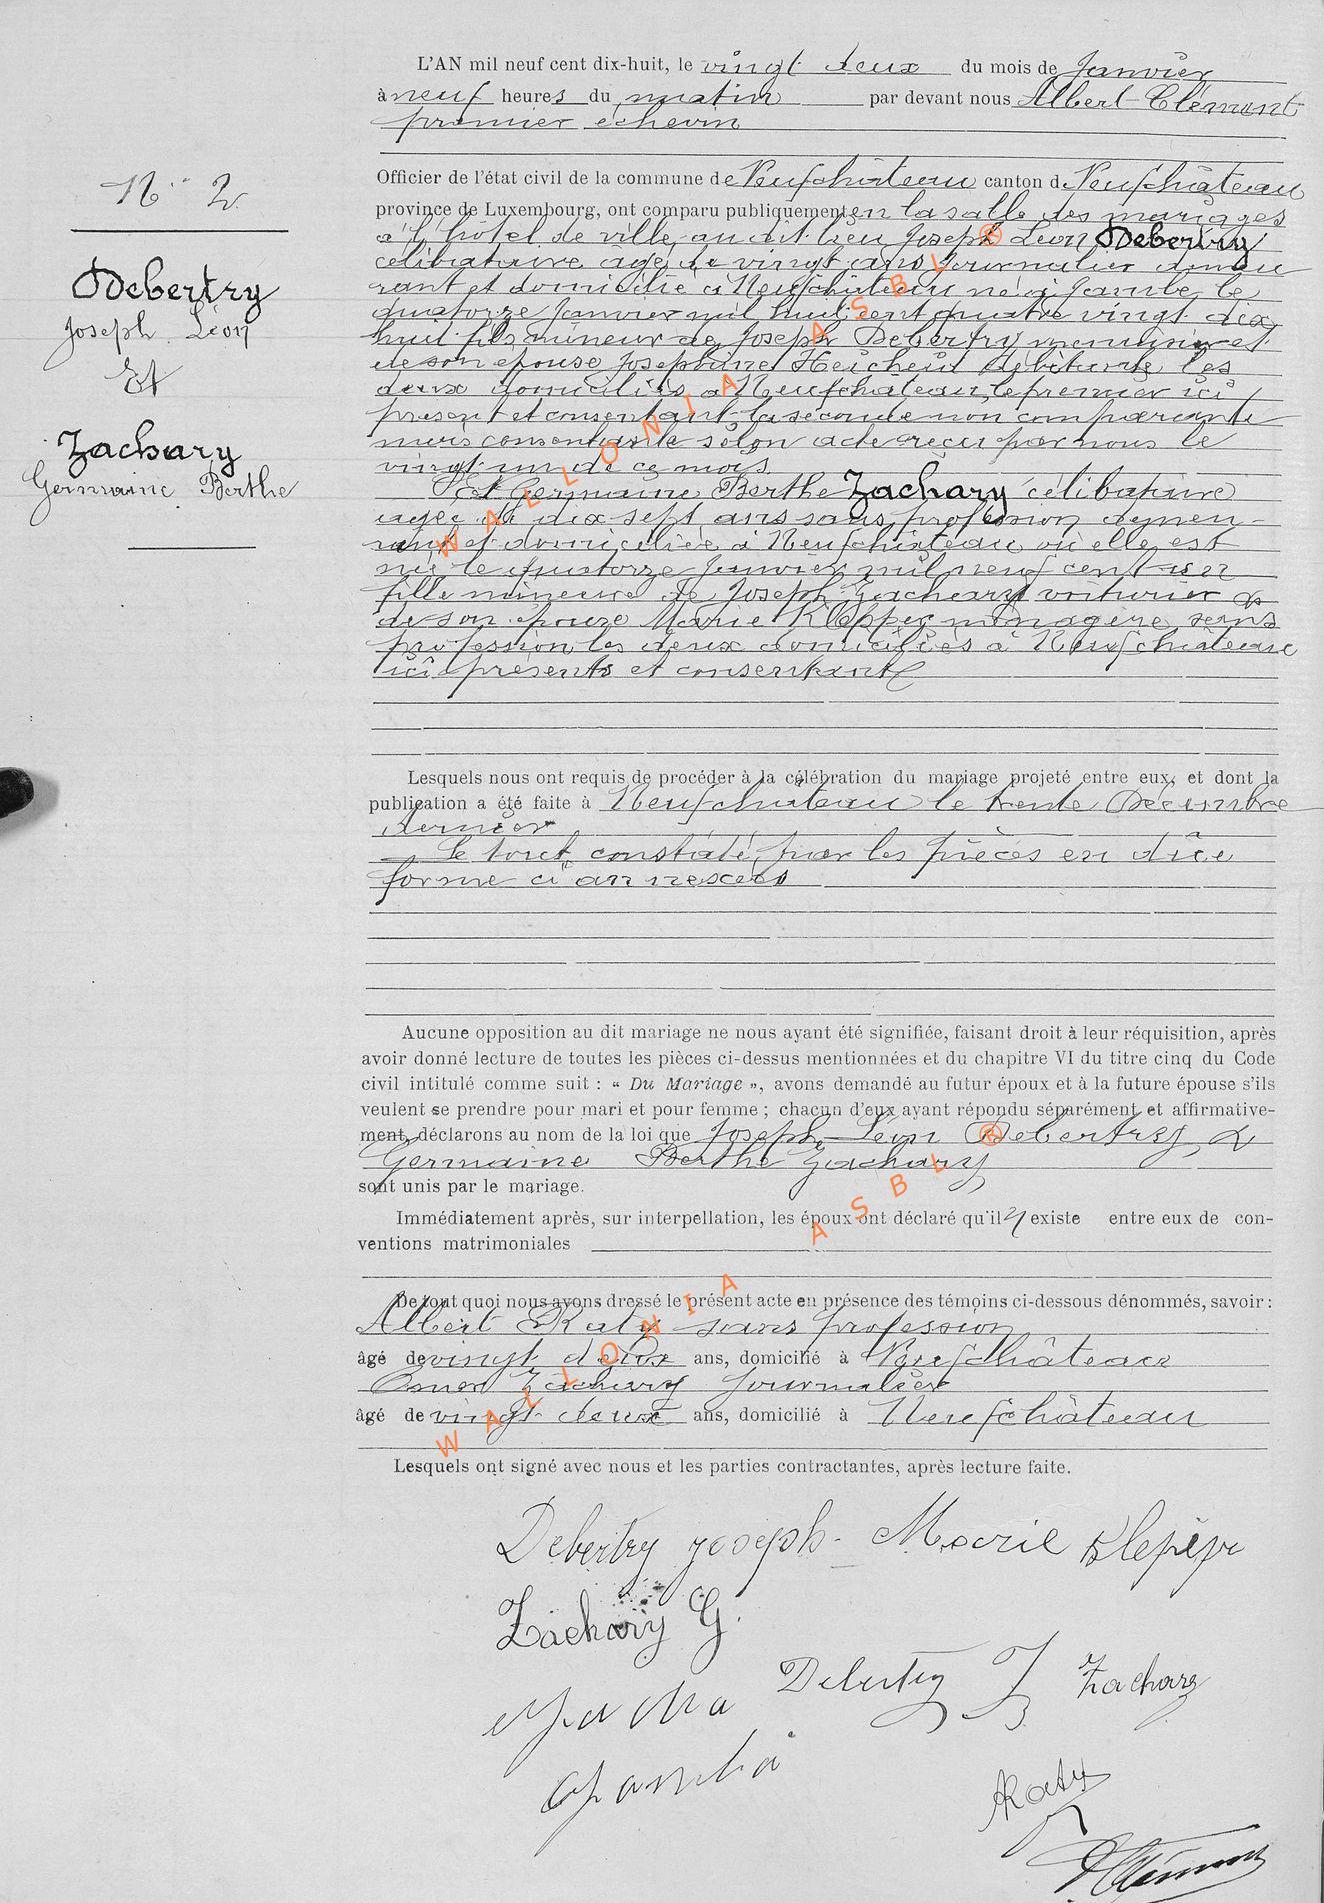 L'AN mil neuf cent dix-huit, le vingt deux du mois de Janvier
à neuf heures du matin par devant nous Albert Clément
premier échevin
Officier de l'état civil de la commune de Neufchâteau canton de Neufchâteau
province de Luxembourg, ont comparu publiquement en la salle des mariages
à l'hôtel de ville, au dit lieu Joseph Léon Debertry
célibataire âgé de vingt ans journalier demeu
rant et domicilié à Neufchâteau né à Jambe le
quatorze Janvier mil huit cent quatre vingt dix
huit fils mineur de Joseph Debertry menuisier et
de son épouse Joséphine les
deux domiciliés à Neufchâteau, le premier ici
présent et consentant la seconde non comparante
mais consentante selon acte reçu par nous le
vingt un de ce mois
Et Germaine Berthe Zachary célibataire
âgée de dix sept ans sans profession demeu-
rant et domiciliée à Neufchâteau où elle est
née le quatorze Janvier mil neuf cent un
fille mineure de Joseph Zachary voiturier &
de son épouse Marie Klepper ménagère sans
profession les deux domiciliés à Neufchâteau
ici présents et consentants
N° 2
Debertry
Joseph Léon
Et
Zachary
Germaine Berthe
Lesquels nous ont requis de procéder à la célébration du mariage projeté entre eux, et dont la
publication a été faite à Neufchâteau le trente Décembre
dernier
Le tout constaté par les pièces en due
forme ci annexées
Aucune opposition au dit mariage ne nous ayant été signifiée, faisant droit à leur réquisition, après
avoir donné lecture de toutes les pièces ci-dessus mentionnées et du chapitre VI du titre cinq du Code
civil intitulé comme suit : « Du Mariage », avons demandé au futur époux et à la future épouse s'ils
veulent se prendre pour mari et pour femme ; chacun d'eux ayant répondu séparément et affirmative-
ment, déclarons au nom de la loi que Joseph Léon Debertry &
Germaine Berthe Zachary
sont unis par le mariage.
Immédiatement après, sur interpellation, les époux ont déclaré qu'il n existe entre eux de con-
ventions matrimoniales
De tout quoi nous avons dressé le présent acte en présence des témoins ci-dessous dénommés, savoir :
Albert Raty sans profession
âgé de vingt deux ans, domicilié à Neufchâteau
Omer Zachary Journalier
âgé de vingt deux ans, domicilié à Neufchâteau
Lesquels ont signé avec nous et les parties contractantes, après lecture faite.
Debertry Joseph Marie Klepper
Zachary G.
Debertry J Zachary
ARaty
AClément
WALLONIA ASBL
WALLONIA ASBL